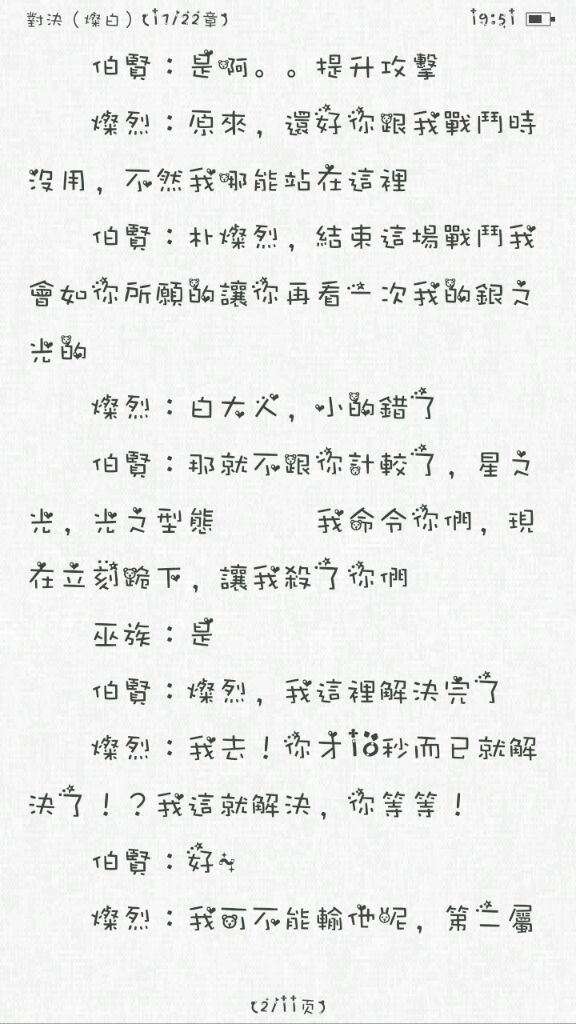 對決（燦白）(17/22章)
19:51
伯賢：是啊。。提升攻擊
燦烈：原來，還好你跟我戰鬥時
沒用，不然我哪能站在這裡
伯賢：朴燦烈，結束這場戰鬥我
會如你所願的讓你再看一次我的銀之
光的
燦烈：白大人，小的錯了
伯賢：那就不跟你計較了，星之
光，光之型態　　我命令你們，現
在立刻跪下，讓我殺了你們
巫族：是
伯賢：燦烈，我這裡解決完了
燦烈：我去！你才10秒而已就解
決了！？我這就解決，你等等！
伯賢：好~
燦烈：我可不能輸他呢，第二屬
(2/11页)